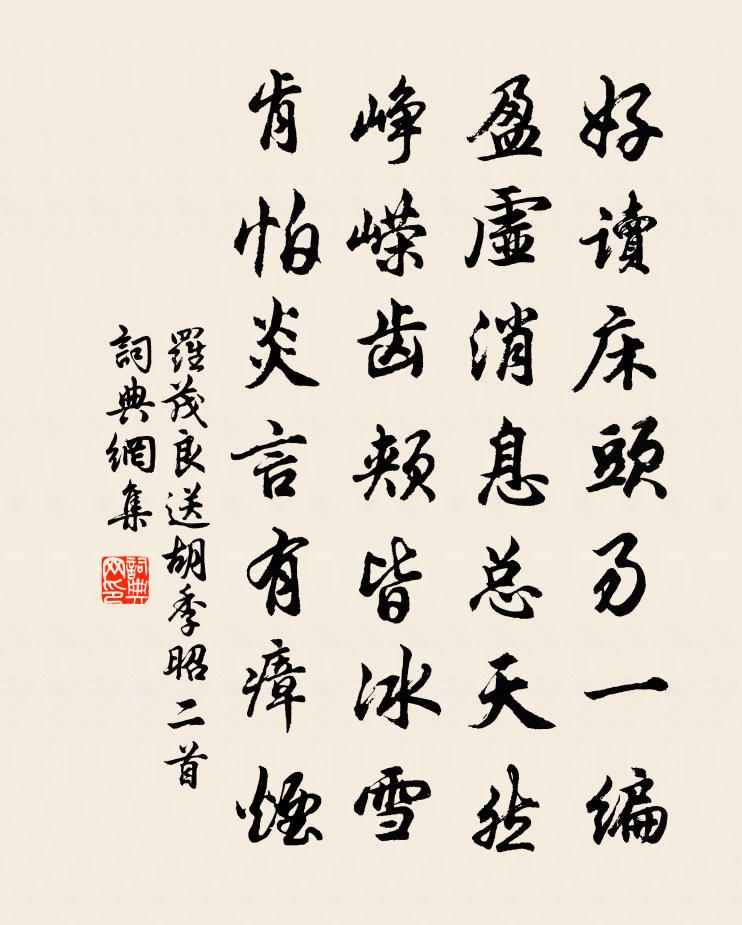 好讀床頭易一编
盈虛消息总天然
峥嵘齿頰皆冰雪
肯怕炎言有瘴煙
羅茂良送胡季昭二首
詞典網集
詞典网印